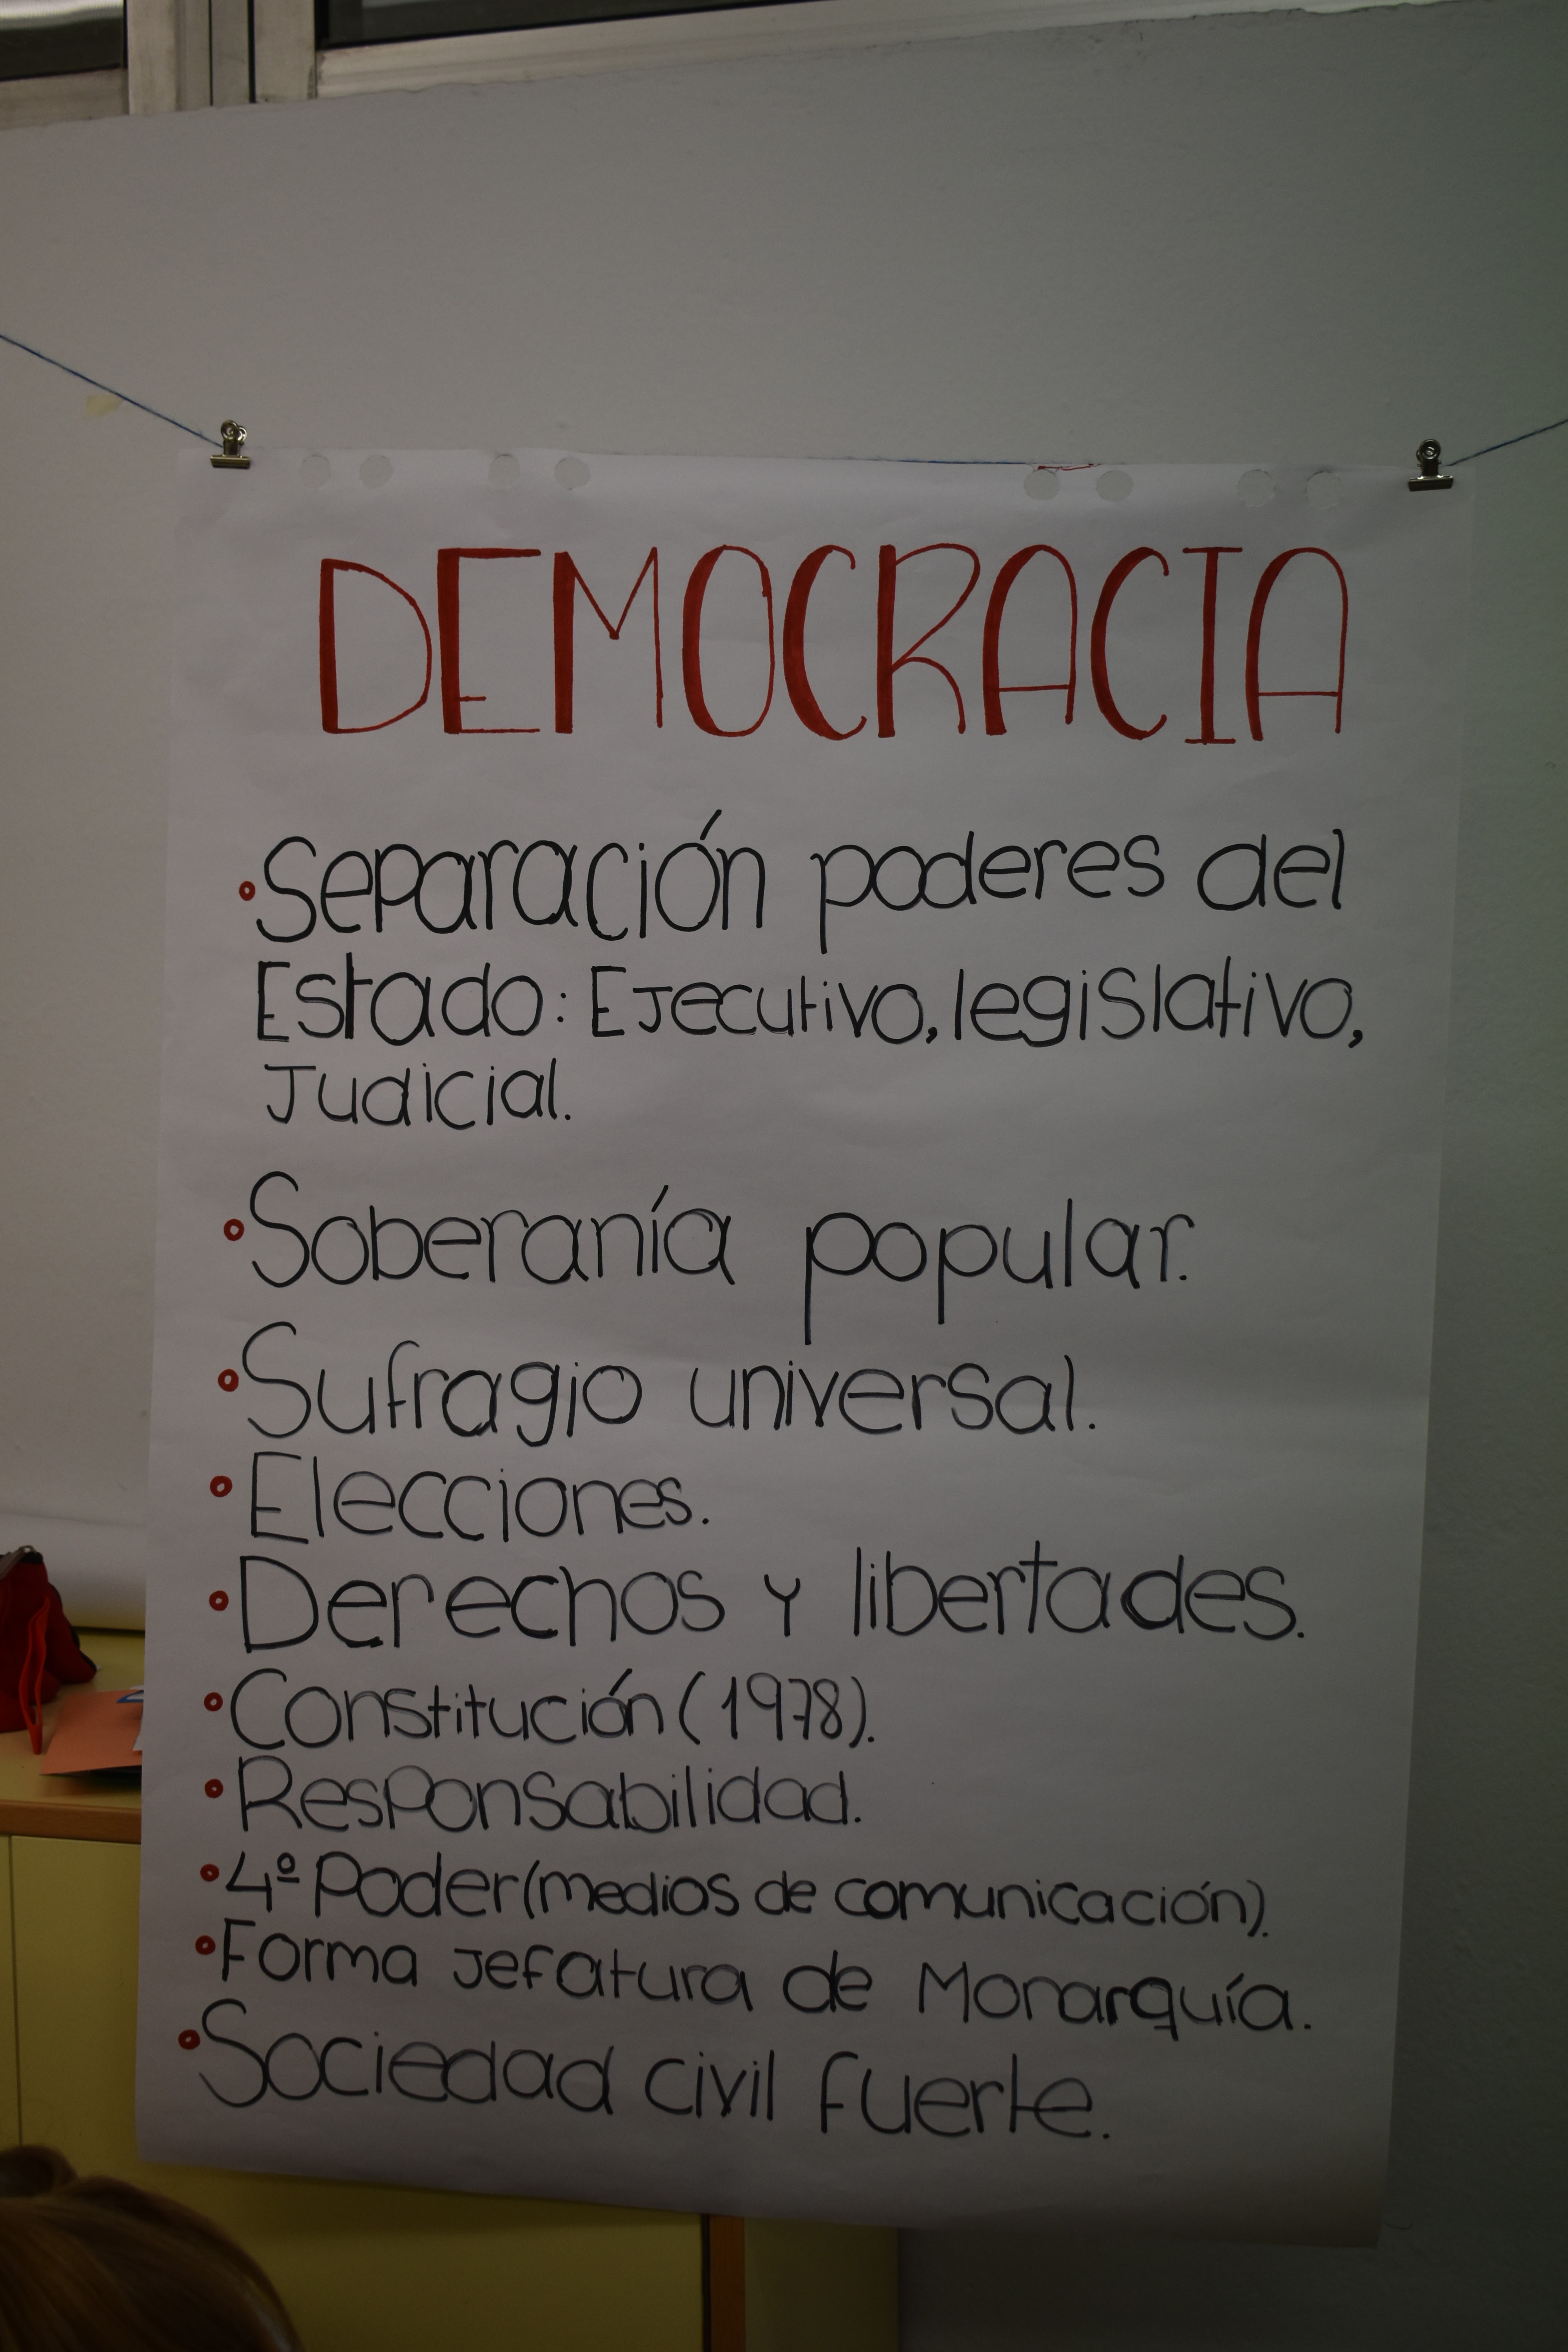 DEMOCRACIA
• Separación poderes del
Estado: Ejecutivo, legislativo,
Judicial.
• Soberanía popular.
• Sufragio universal.
• Elecciones.
• Derechos y libertades.
• Constitución (1978).
• Responsabilidad.
• 4º Poder (medios de comunicación).
• Forma jefatura de Monarquía.
• Sociedad civil fuerte.